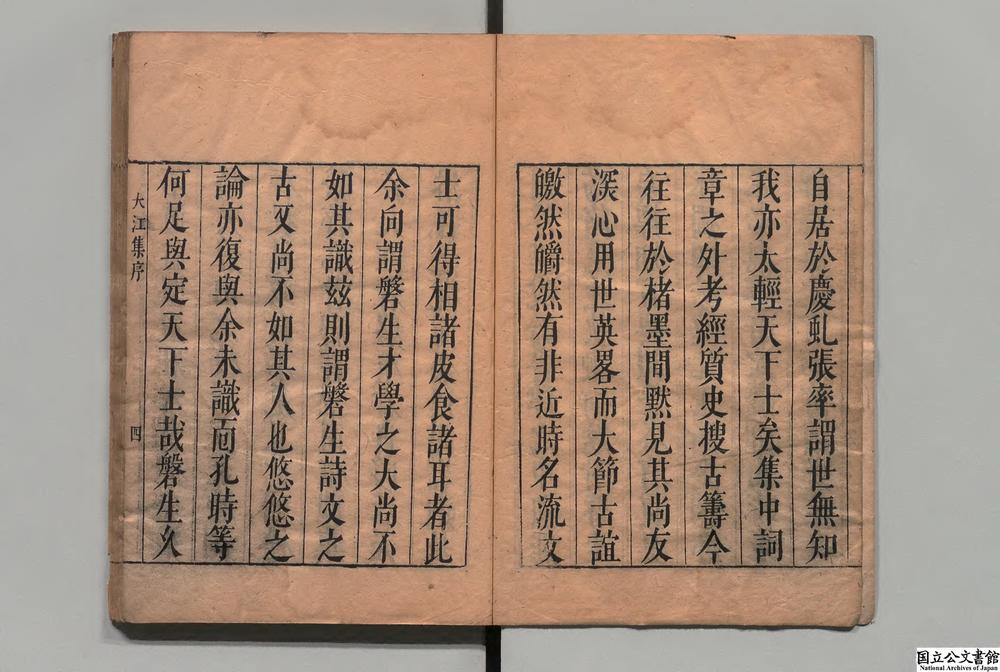 自居於慶虬張率謂世無知
我亦太輕天下士矣集中詞
章之外考經質史搜古籌今
往往於楮墨間黙見其尚友
深心用世英畧而大節古誼
皦然皭然有非近時名流文
士可得相諸皮食諸耳者此
余向謂磐生才學之大尚不
如其識玆則謂磐生詩文之
古又尚不如其人也悠悠之
論亦復與余未識面孔時等
何足與定天下士哉磐生久
大江集序
四
国立公文書館
National Archives of Japan